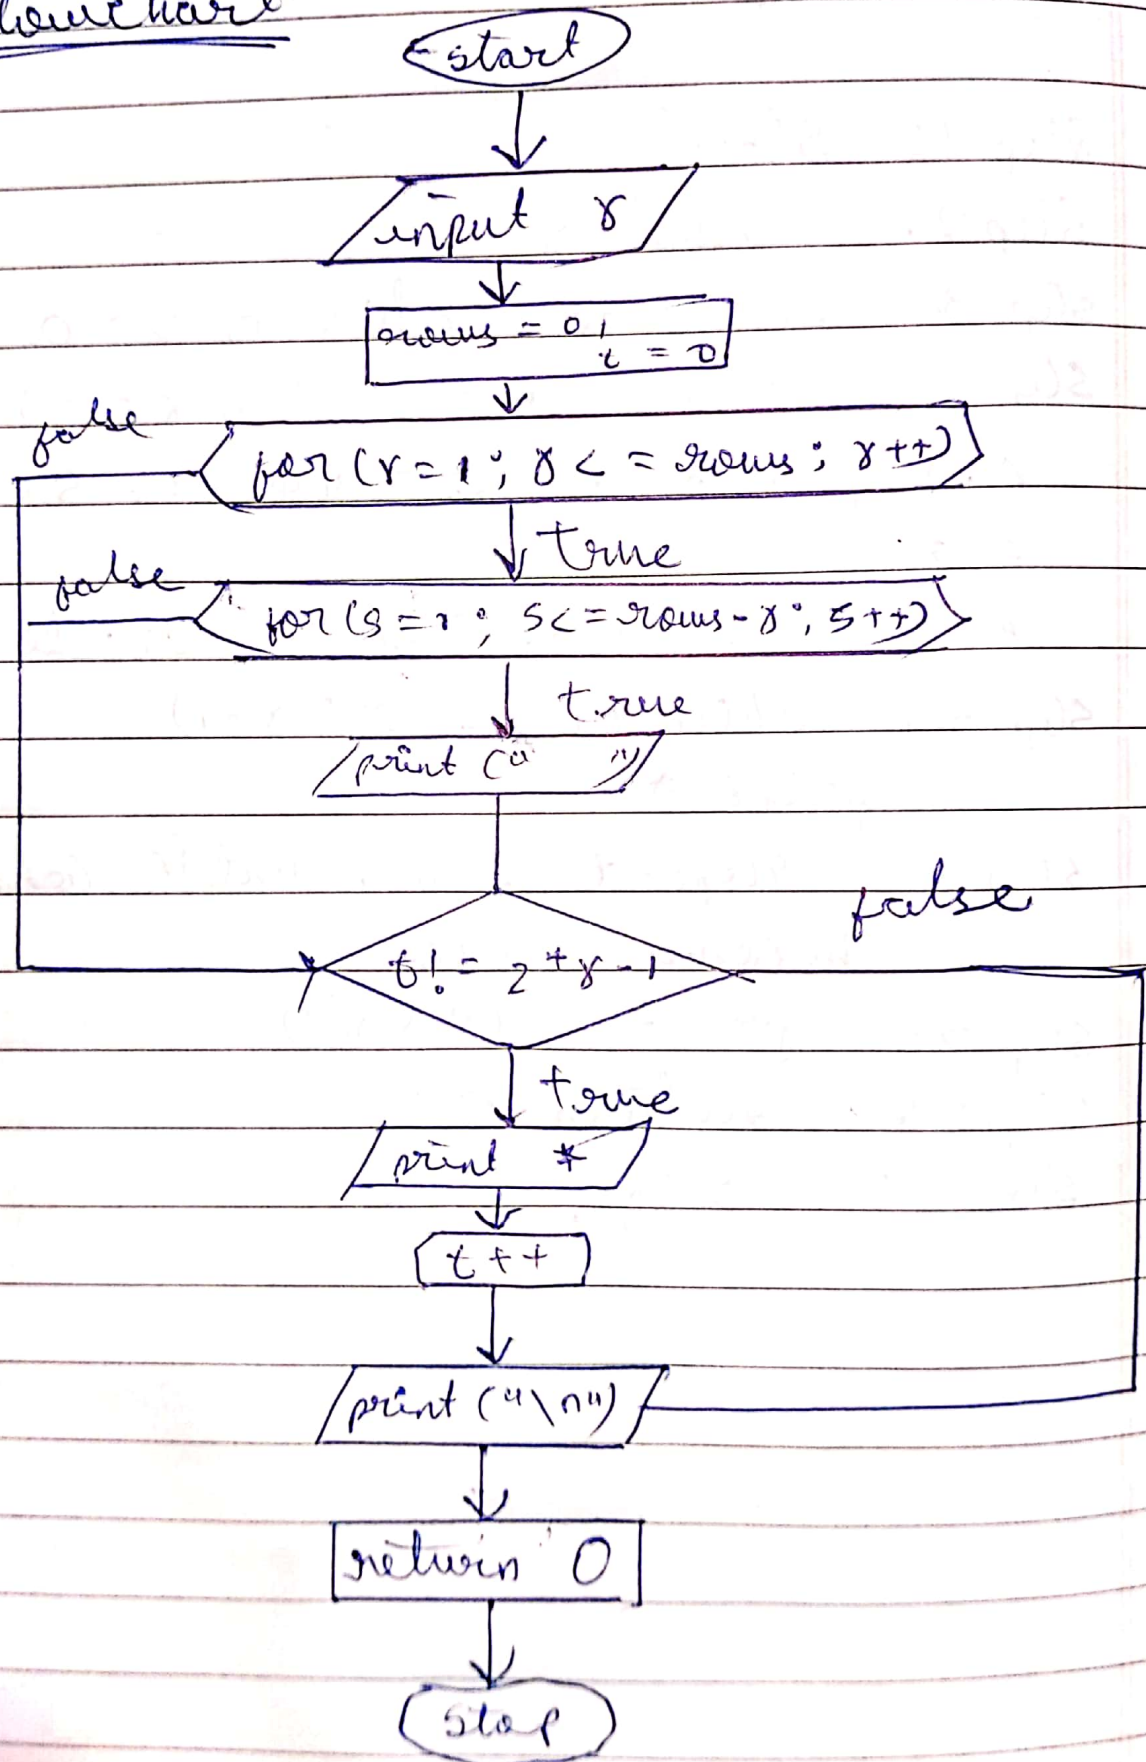 flowchart
start
input r
rows = 0,
t = 0
false
for (r = 1 ; r < = rows ; r++)
true
false
for (s = 1 ; s <= rows - r ; s++)
true
print (" ")
false
t != 2 * r - 1
true
print *
t ++
print ("\n")
return 0
stop